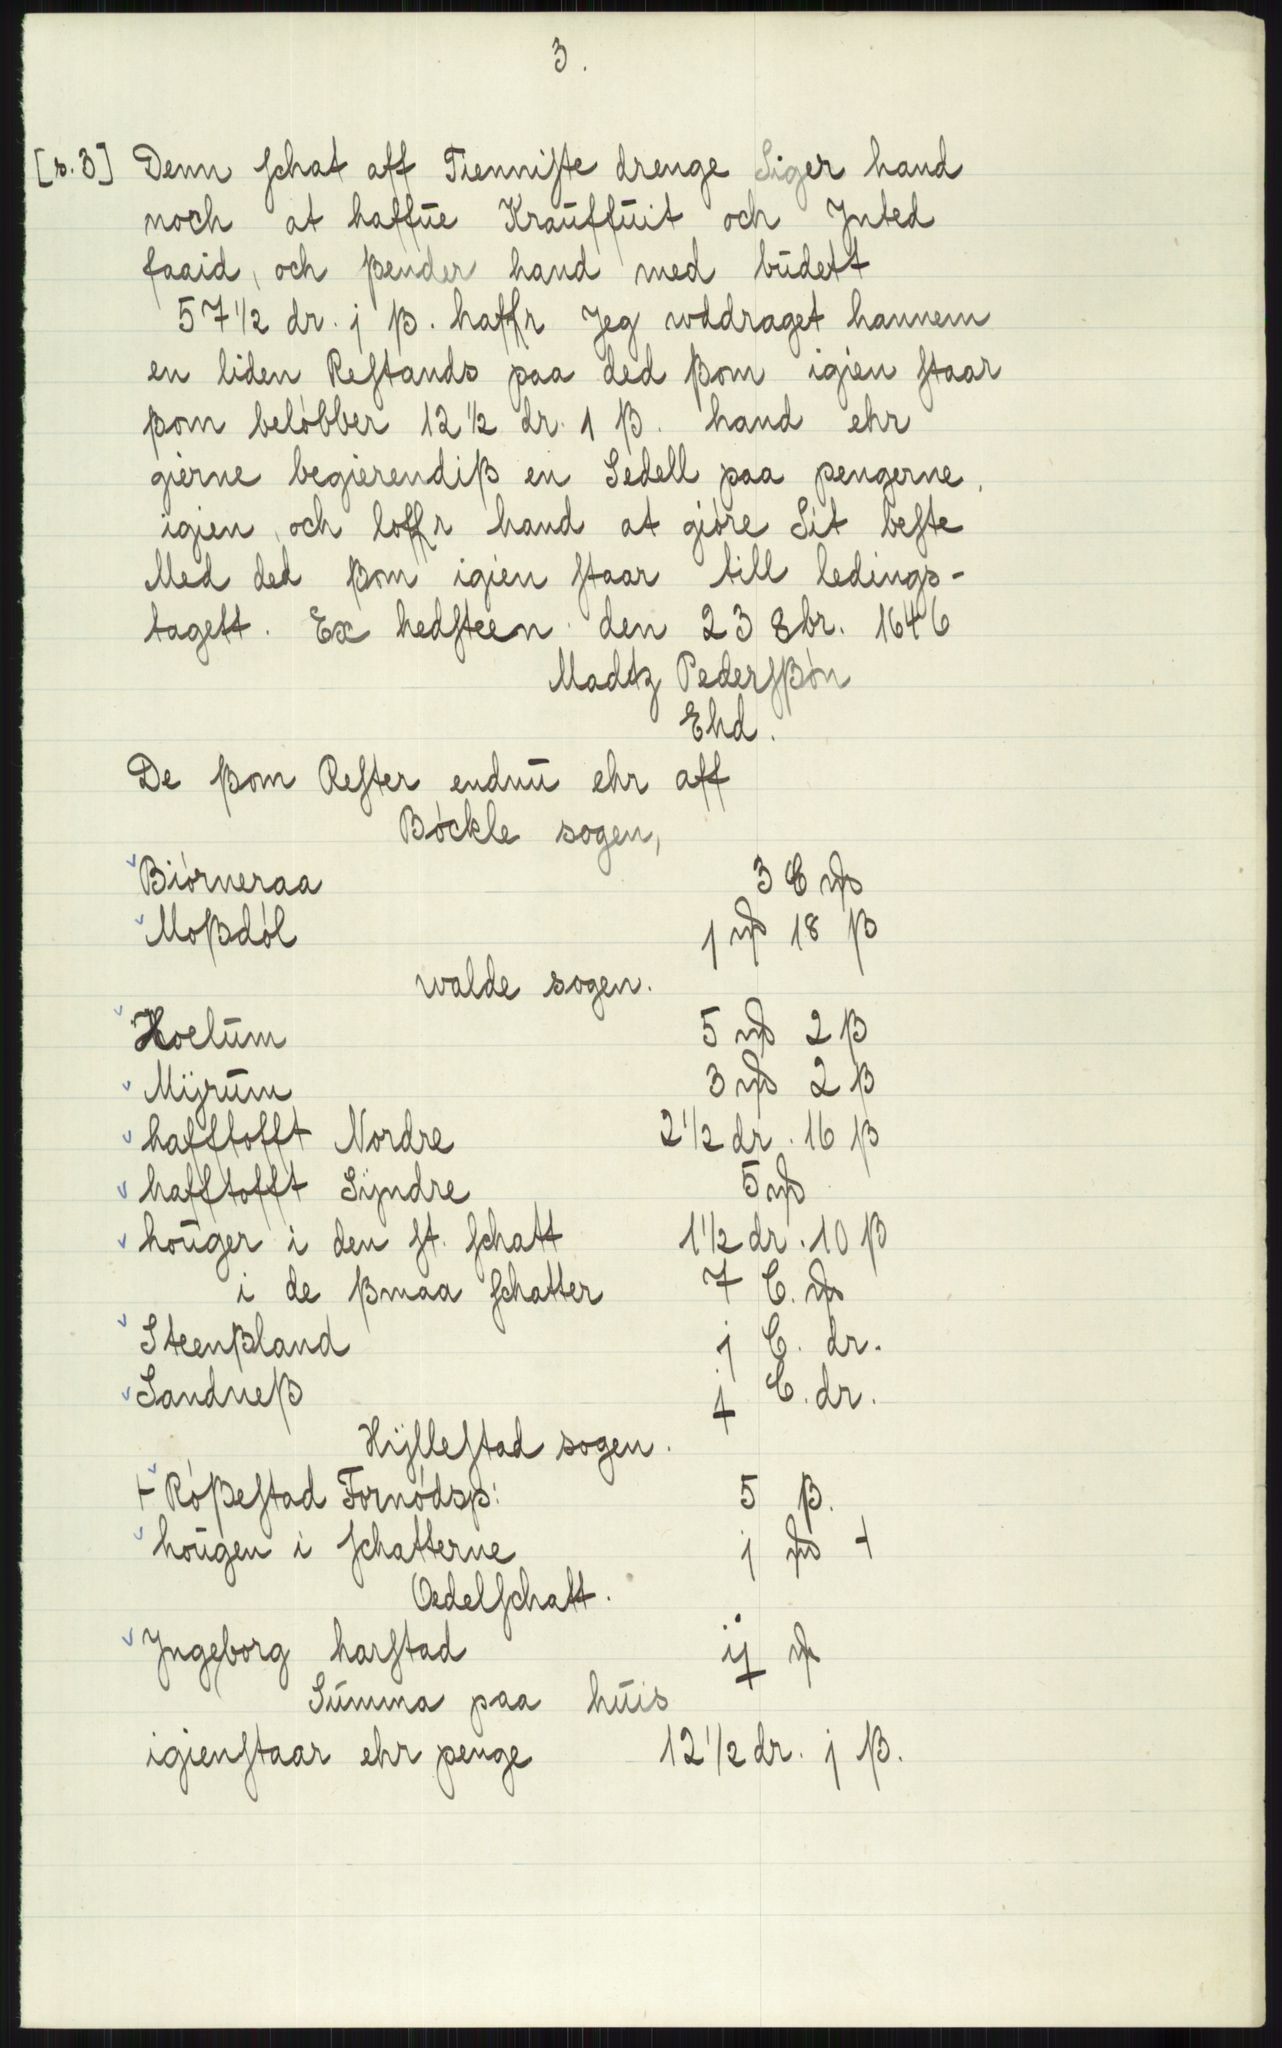 3.
[s. 3] Denn schat aff Tienniste drenge Siger hand
noch at haffue Krauffuit och Jnted
faaid, och ßender hand med budett
57 1/2 dr. j ß. haffr Jeg wddraget hannem
en liden Restands paa ded ßom igien staar
ßom belöbber 12 1/2 dr. 1 ß. hand ehr
gierne begierendiß en Sedell paa pengerne,
igien, och loffr hand at giöre Sit beste
Med ded ßom igien staar till ledings-
tagett. Ex hedsteen den 23 8br. 1646
Maddz Pedersßön
Ehd.
De ßom Rester endnu ehr aff
Böckle sogen,
Biörneraa 3 C
Moßdöl 1 18 ß
walde sogen.
Hoelum 5 2 ß
Mÿrum 3 2 ß
hafftofft Nordre 2 1/2 dr. 16 ß
hafftofft Sÿndre 5
houger i den st. schatt 1 1/2 dr. 10 ß
i de ßmaa schatter 7 C.
Steenßland j C. dr.
Sandneß j C. dr.
Hÿllestad sogen.
+ Rößestad Fornödsp: 5 ß.
hougen i schatterne j +
Oedelschatt.
Jngeborg harstad ij
Summa paa huis
igienstaar ehr penge 12 1/2 dr. j ß.